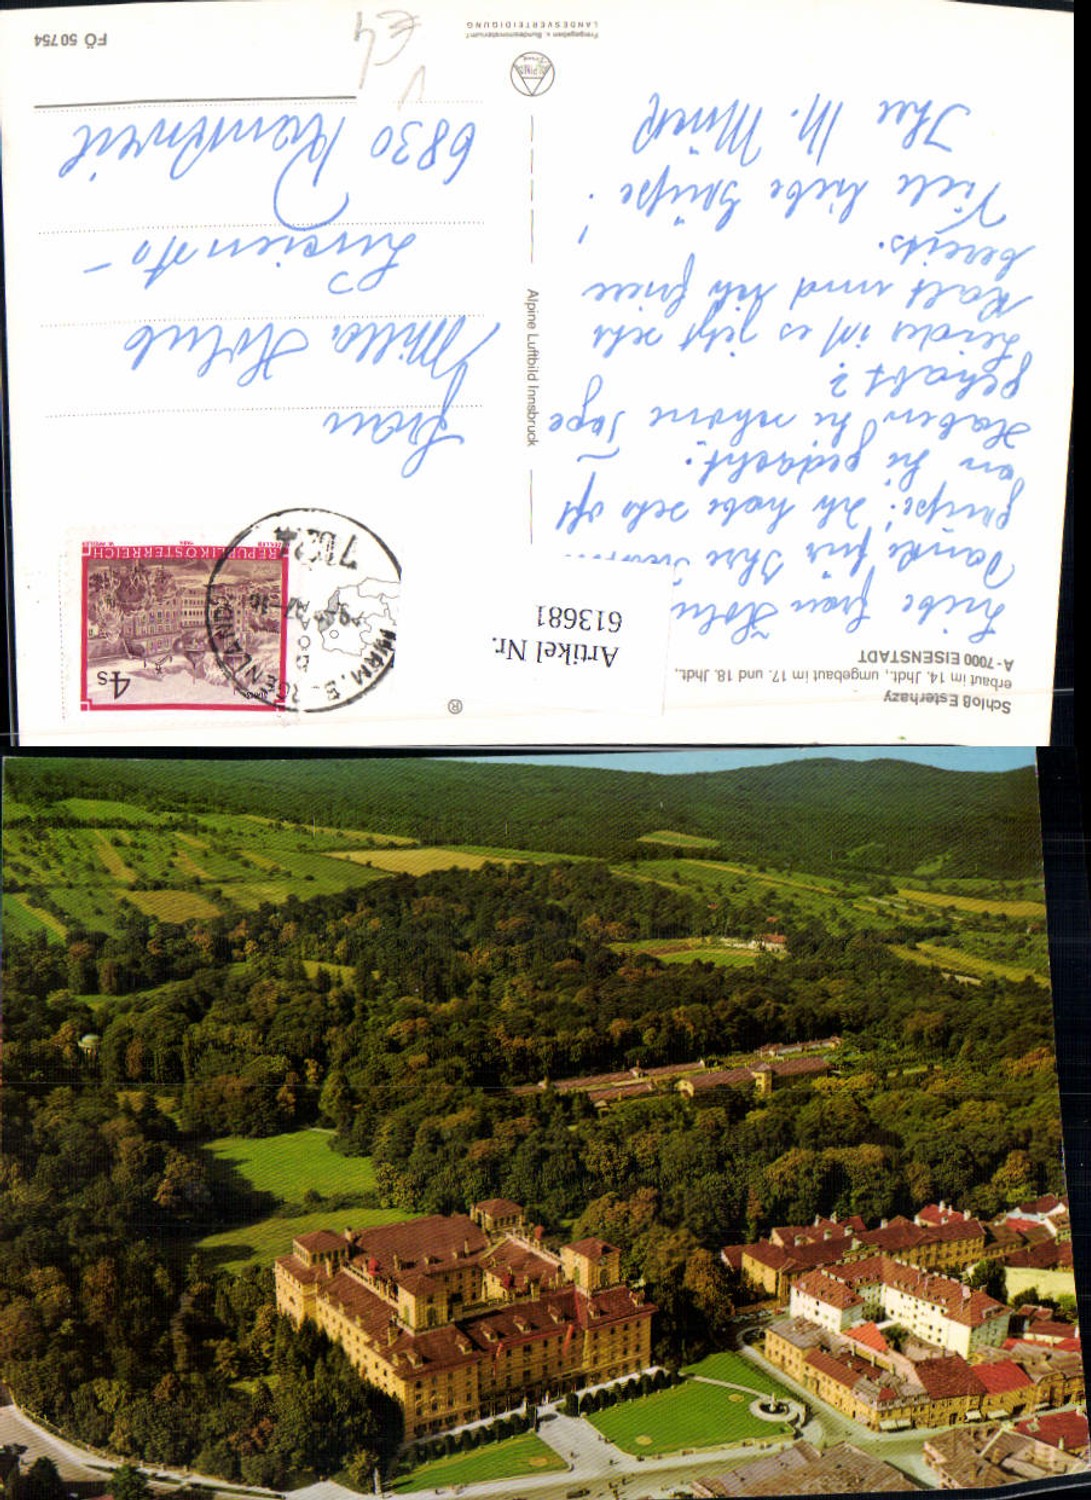 Schloß Esterhazy
erbaut im 14. Jhdt., umgebaut im 17. und 18. Jhdt.,
A-7000 EISENSTADT
Artikel Nr.
613681
Liebe Frau Holu
Danke für Ihre
Grüße! Ich habe sehr oft
an Sie gedacht.
Haben Sie schöne Tage
gehabt?
Leider ist es jetzt sehr
kalt und ich friere
bereits.
Viele liebe Grüße!
Ihre M.
Alpine Luftbild Innsbruck
®
4s
REPUBLIK ÖSTERREICH
Frau
Milla Holub
6830 Rankweil
FÖ 50 754
Freigegeben v. Bundesministerium f.
LANDESVERTEIDIGUNG
€4